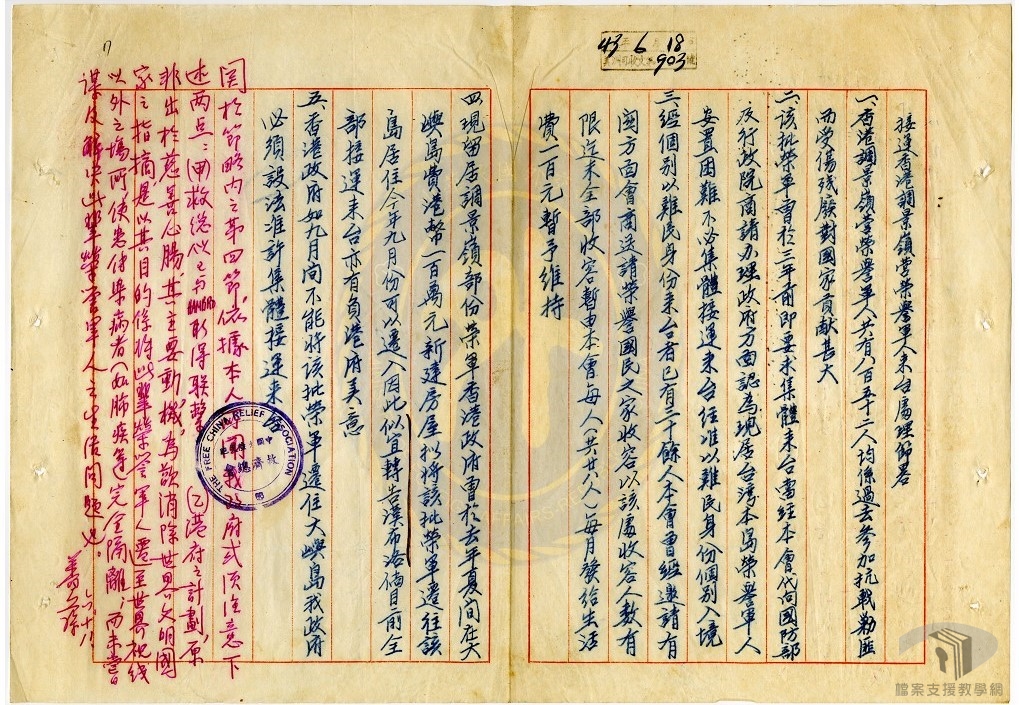 43 6 18
903
接運香港調景嶺營榮譽軍人來台處理節署
一、香港調景嶺營榮譽軍人共有八百五十二人均係過去參加抗戰勦匪
而受傷殘廢對國家貢獻甚大
二、該批榮軍曾於三年前即要求集體來台當經本會代向國防部
及行政院商請辦理政府方面認為現居台灣本島榮譽軍人
安置困難不必集體接運來台徑准以難民身份個別入境
三、經個別以難民身份來台者已有二十餘人本會曾經邀請有
關方面會商送請榮譽國民之家收容以該處收容人數有
限迄未全部收容暫由本會每人(共廿八人)每月發給生活
費一百元暫予維持
四、現留居調景嶺部份榮軍香港政府曾於去年夏間在大
嶼島費港幣一百萬元新建房屋擬將該批榮軍遷往該
島居住今年九月份可以遷入因此似宜轉告漢布洛倘目前全
部接運來台亦有負港府美意
五、香港政府如九月間不能將該批榮軍遷往大嶼島我政府
必須設法准許集體接運來台
関於節略內之第四節,依據本人 我政府或須注意下
述兩点:(甲)救總似已与 取得聯繫,(乙)港府之計劃,原
非出於慈善心腸,其主要動機,為欲消除世界文明國
家之指摘,是以其目的係將此輩榮譽軍人遷至世界視綫
以外之場所,使患傳染病者(如肺疾等)完全隔離,而未嘗
謀及解決此輩榮譽軍人之生活問題也。
六、十八
THE FREE CHINA RELIEF ASSOCIATION
中國
救濟總會
檔案支援教學網